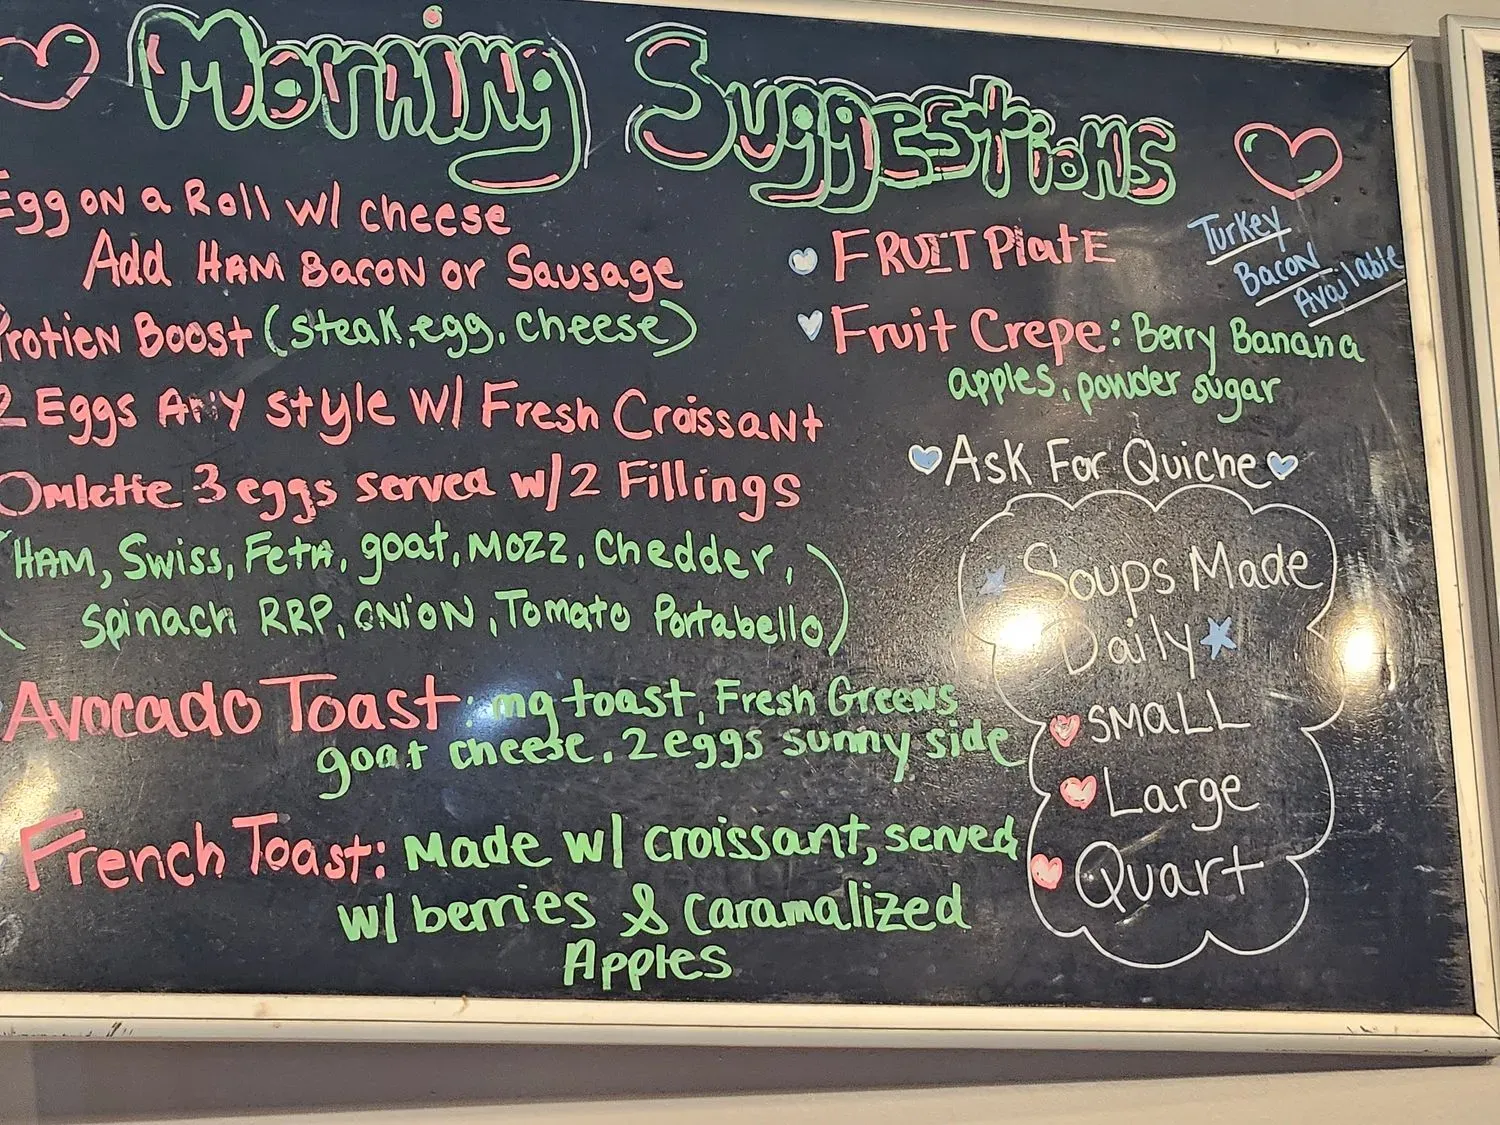 Morning Suggestions
Egg on a Roll w/ cheese
Add HAM BACON or Sausage
Protien Boost (steak, egg, cheese)
2 Eggs ANY style w/ Fresh Croissant
Omlette 3 eggs served w/ 2 Fillings
(HAM, Swiss, FetA, goat, Mozz, Chedder,
Spinach RRP, ONiON, Tomato Portabello)
Avocado Toast: mg toast, Fresh Greens
goat cheese, 2 eggs sunny side
French Toast: Made w/ croissant, served
w/ berries & Caramalized
Apples
FRUIT PlatE
Turkey
Bacon
Available
Fruit Crepe: Berry Banana
apples, powder sugar
Ask For Quiche
Soups Made
Daily
SMaLL
Large
Quart